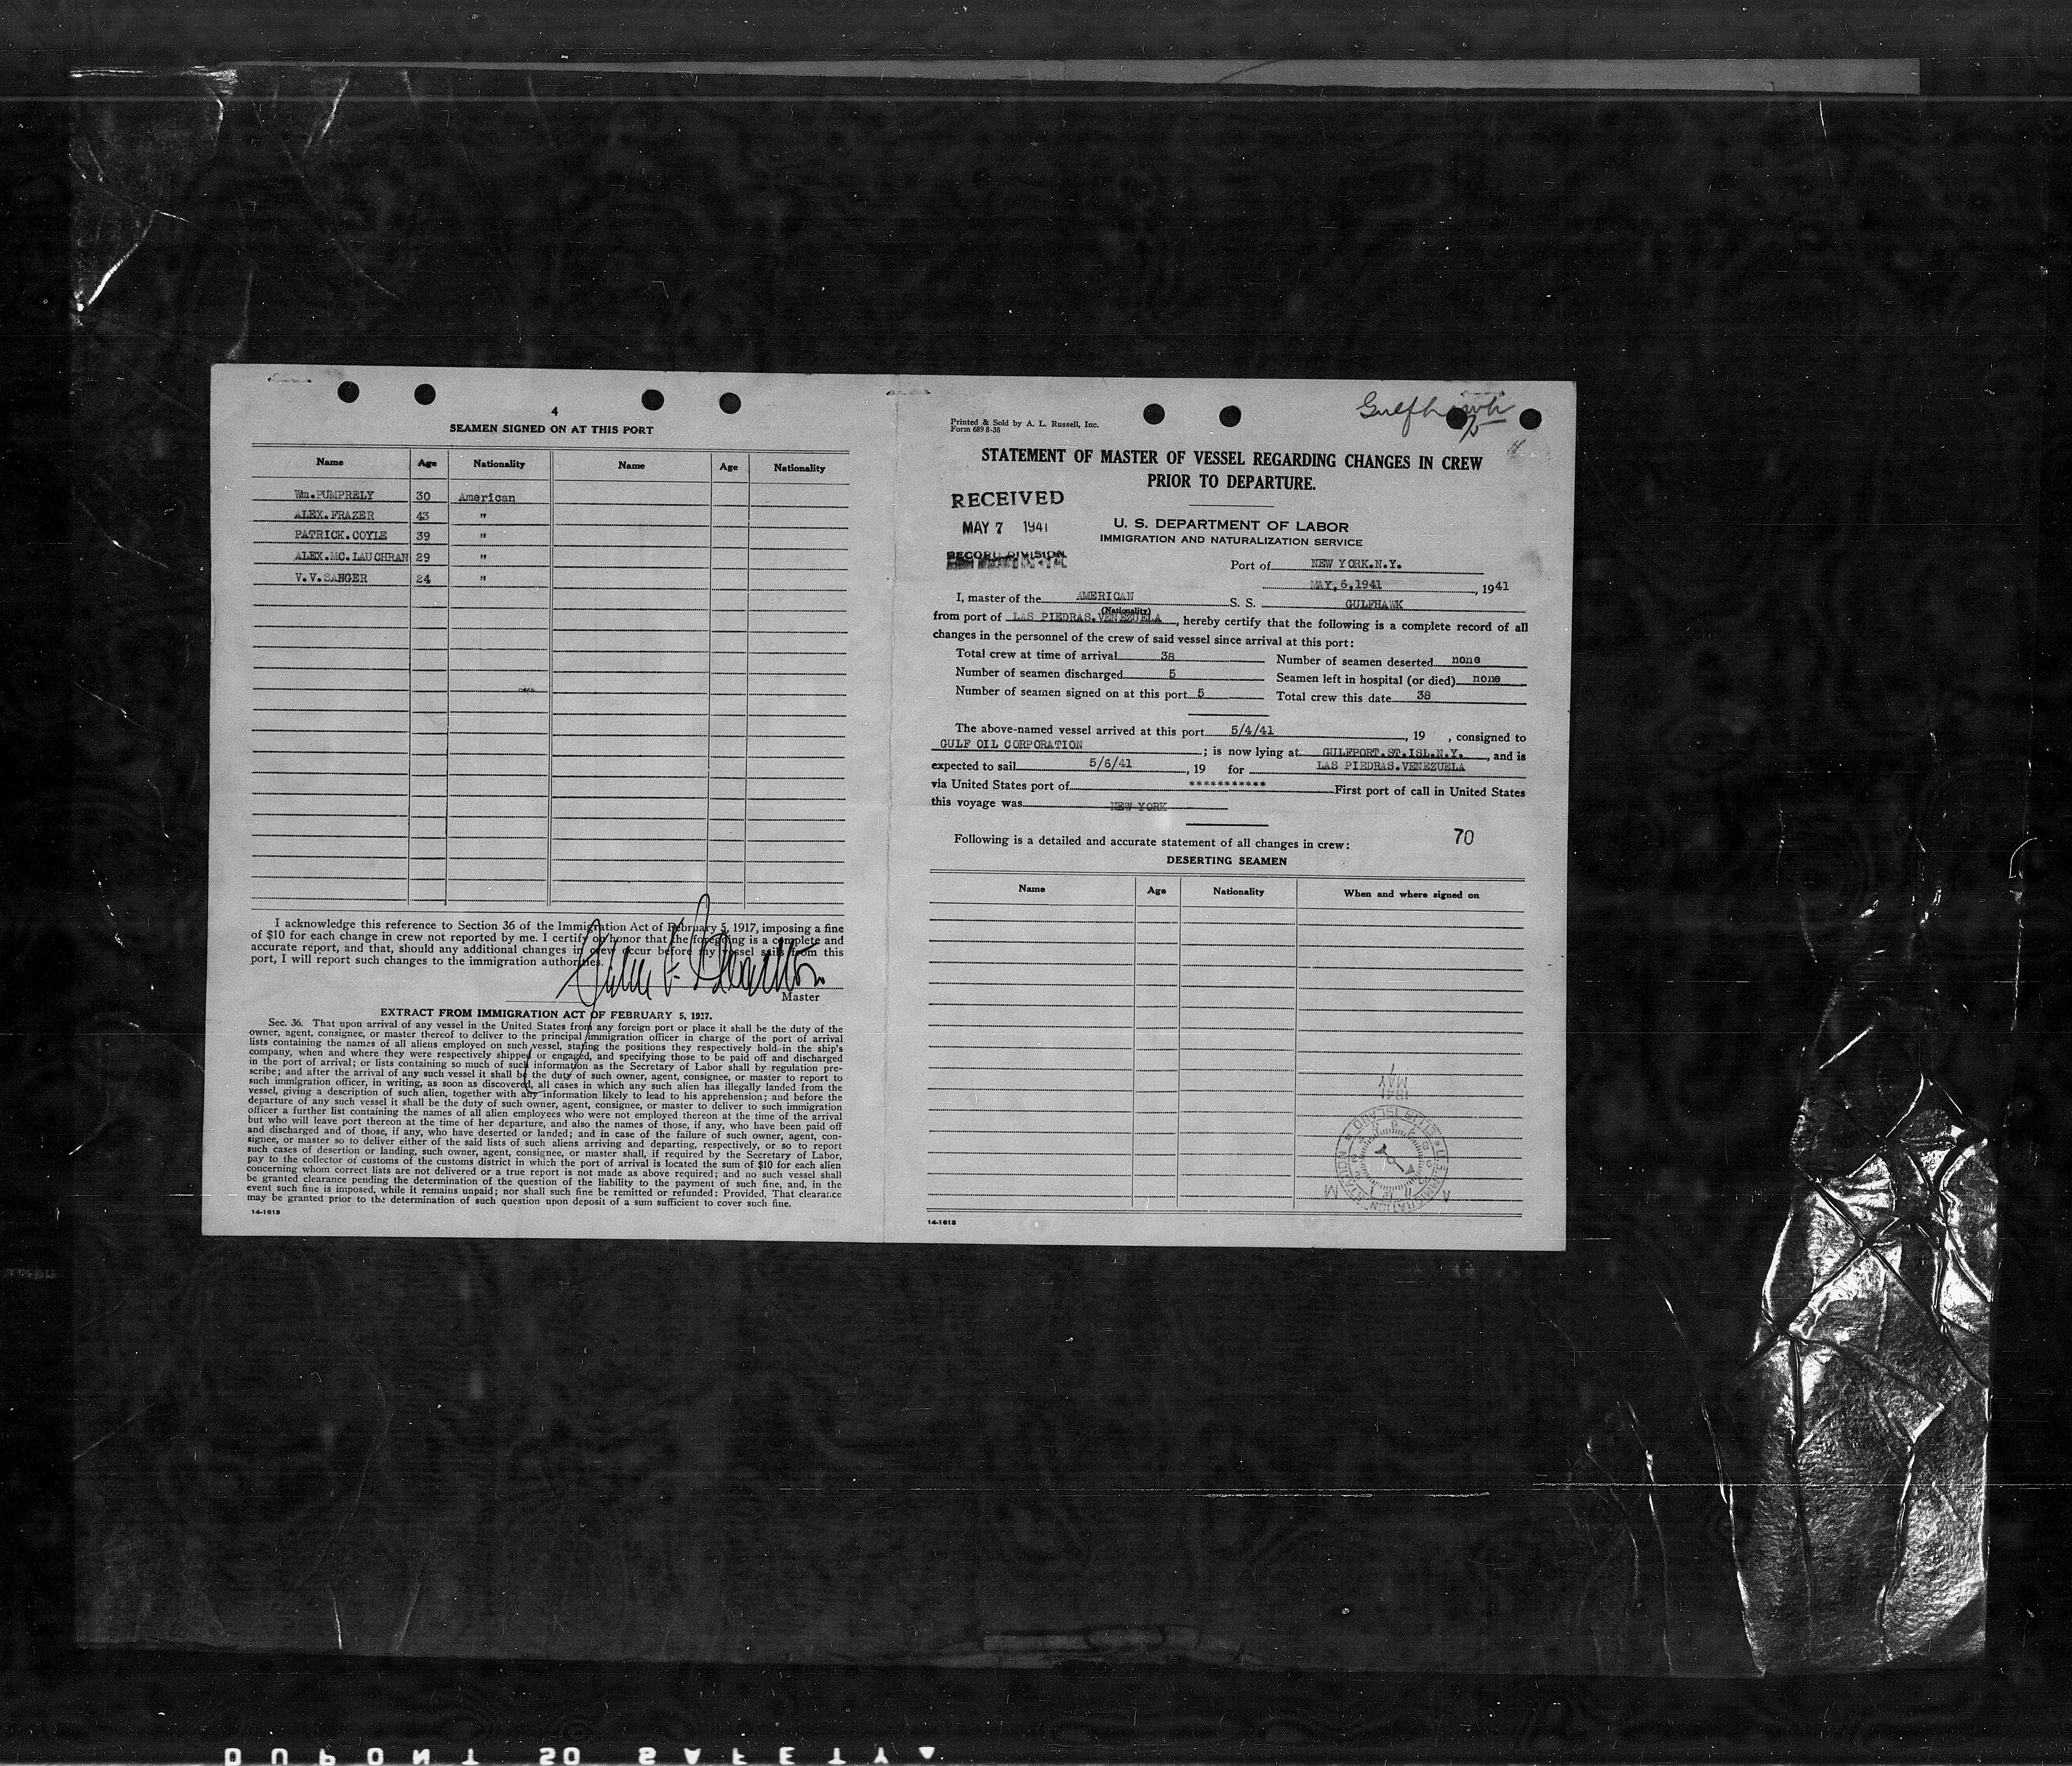 4
SEAMEN SIGNED ON AT THIS PORT
Name Age Nationality Name Age Nationality
Wm.PUMPRELY 30 American
ALEX.FRAZER 43 "
PATRICK.COYLE 39 "
ALEX.MC.LAUCHRAN 29 "
V.V.SANGER 24 "
I acknowledge this reference to Section 36 of the Immigration Act of February 5, 1917, imposing a fine
of $10 for each change in crew not reported by me. I certify on honor that the foregoing is a complete and
accurate report, and that, should any additional changes in crew occur before my vessel sails from this
port, I will report such changes to the immigration authorities.
Master
EXTRACT FROM IMMIGRATION ACT OF FEBRUARY 5, 1917.
Sec. 36. That upon arrival of any vessel in the United States from any foreign port or place it shall be the duty of the
owner, agent, consignee, or master thereof to deliver to the principal immigration officer in charge of the port of arrival
lists containing the names of all aliens employed on such vessel, stating the positions they respectively hold in the ship's
company, when and where they were respectively shipped or engaged, and specifying those to be paid off and discharged
in the port of arrival; or lists containing so much of such information as the Secretary of Labor shall by regulation pre-
scribe; and after the arrival of any such vessel it shall be the duty of such owner, agent, consignee, or master to report to
such immigration officer, in writing, as soon as discovered, all cases in which any such alien has illegally landed from the
vessel, giving a description of such alien, together with any information likely to lead to his apprehension; and before the
departure of any such vessel it shall be the duty of such owner, agent, consignee, or master to deliver to such immigration
officer a further list containing the names of all alien employees who were not employed thereon at the time of the arrival
but who will leave port thereon at the time of her departure, and also the names of those, if any, who have been paid off
and discharged and of those, if any, who have deserted or landed; and in case of the failure of such owner, agent, con-
signee, or master so to deliver either of the said lists of such aliens arriving and departing, respectively, or so to report
such cases of desertion or landing, such owner, agent, consignee, or master shall, if required by the Secretary of Labor,
pay to the collector of customs of the customs district in which the port of arrival is located the sum of $10 for each alien
concerning whom correct lists are not delivered or a true report is not made as above required; and no such vessel shall
be granted clearance pending the determination of the question of the liability to the payment of such fine, and, in the
event such fine is imposed, while it remains unpaid; nor shall such fine be remitted or refunded: Provided, That clearance
may be granted prior to the determination of such question upon deposit of a sum sufficient to cover such fine.
14-1613
Gulfhawk
Printed & Sold by A. L. Russell, Inc.
Form 689 8-38
STATEMENT OF MASTER OF VESSEL REGARDING CHANGES IN CREW
PRIOR TO DEPARTURE.
RECEIVED
MAY 7 1941
RECORD DIVISION
U. S. DEPARTMENT OF LABOR
IMMIGRATION AND NATURALIZATION SERVICE
Port of NEW YORK.N.Y.
MAY,6,1941, 1941
I, master of the AMERICAN S. S. GULFHAWK
(Nationality)
from port of LAS PIEDRAS.VENEZUELA, hereby certify that the following is a complete record of all
changes in the personnel of the crew of said vessel since arrival at this port:
Total crew at time of arrival 38 Number of seamen deserted none
Number of seamen discharged 5 Seamen left in hospital (or died) none
Number of seamen signed on at this port 5 Total crew this date 38
The above-named vessel arrived at this port 5/4/41, 19 , consigned to
GULF OIL CORPORATION; is now lying at GULFPORT.ST.ISL.N.Y., and is
expected to sail 5/6/41, 19 for LAS PIEDRAS.VENEZUELA
via United States port of *********** First port of call in United States
this voyage was NEW YORK
Following is a detailed and accurate statement of all changes in crew: 70
DESERTING SEAMEN
Name Age Nationality When and where signed on
1941
MAY
7
IMMIGRATION STATION ELLIS ISLAND
14-1613
DUPONT SO SAFETY